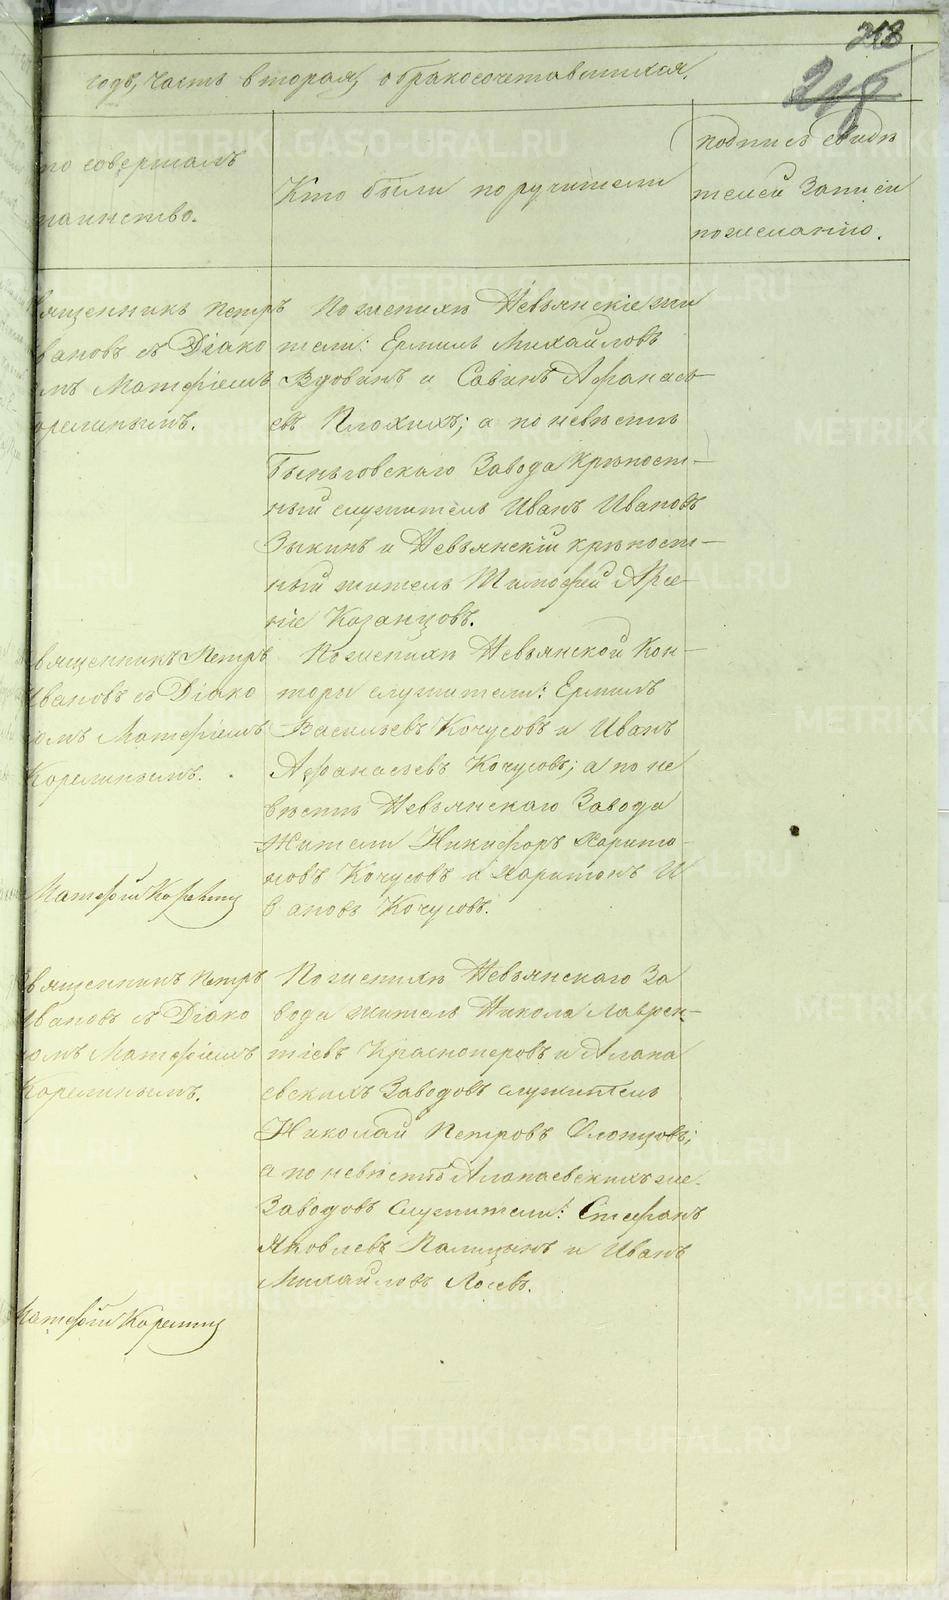 218
218
годъ, часть вторая, о бракосочетавшихся.
то совершалъ
таинство.
Кто были поручители
подпись свидѣ
телей записи
по желанію.
вященникъ Петръ
вановъ съ Діако
мъ Матфіемъ
орелинымъ.
По женихѣ Невьянскіе жи
тели: Ермилъ Михайловъ
Вдовинъ и Савинъ Афанась
евъ Плохихъ; а по невѣстѣ
Быньговскаго Завода крѣпост-
ный служитель Иванъ Ивановъ
Зыкинъ и Невьянскій крѣпост-
ный житель Тимофей Арсе-
ніе Казанцовъ.
вященникъ Петръ
Ивановъ съ Діако
омъ Матфіемъ
Корелинымъ.
Матфей Корелинъ
По женихѣ Невьянской Кон-
торы служители: Ермилъ
Васильевъ Кочусовъ и Иванъ
Афанасьевъ Кочусовъ; а по не
вѣстѣ Невьянскаго Завода
Жители Никифоръ Харито-
новъ Кочусовъ и Харитонъ И
вановъ Кочусовъ.
вященникъ Петръ
Ивановъ съ Діако
омъ Матфіемъ
Корелинымъ.
Матфей Корелинъ
По женихѣ Невьянскаго За
вода житель Никола Лаврен-
тіевъ Красноперовъ и Алапа
евскихъ Заводовъ служитель
Николай Петровъ Слопцовъ;
а по невѣстѣ Алапаевскихъ же
Заводовъ служители: Стефанъ
Яковлевъ Палицынъ и Иванъ
Михайловъ Лосевъ.
METRIKI.GASO-URAL.RU